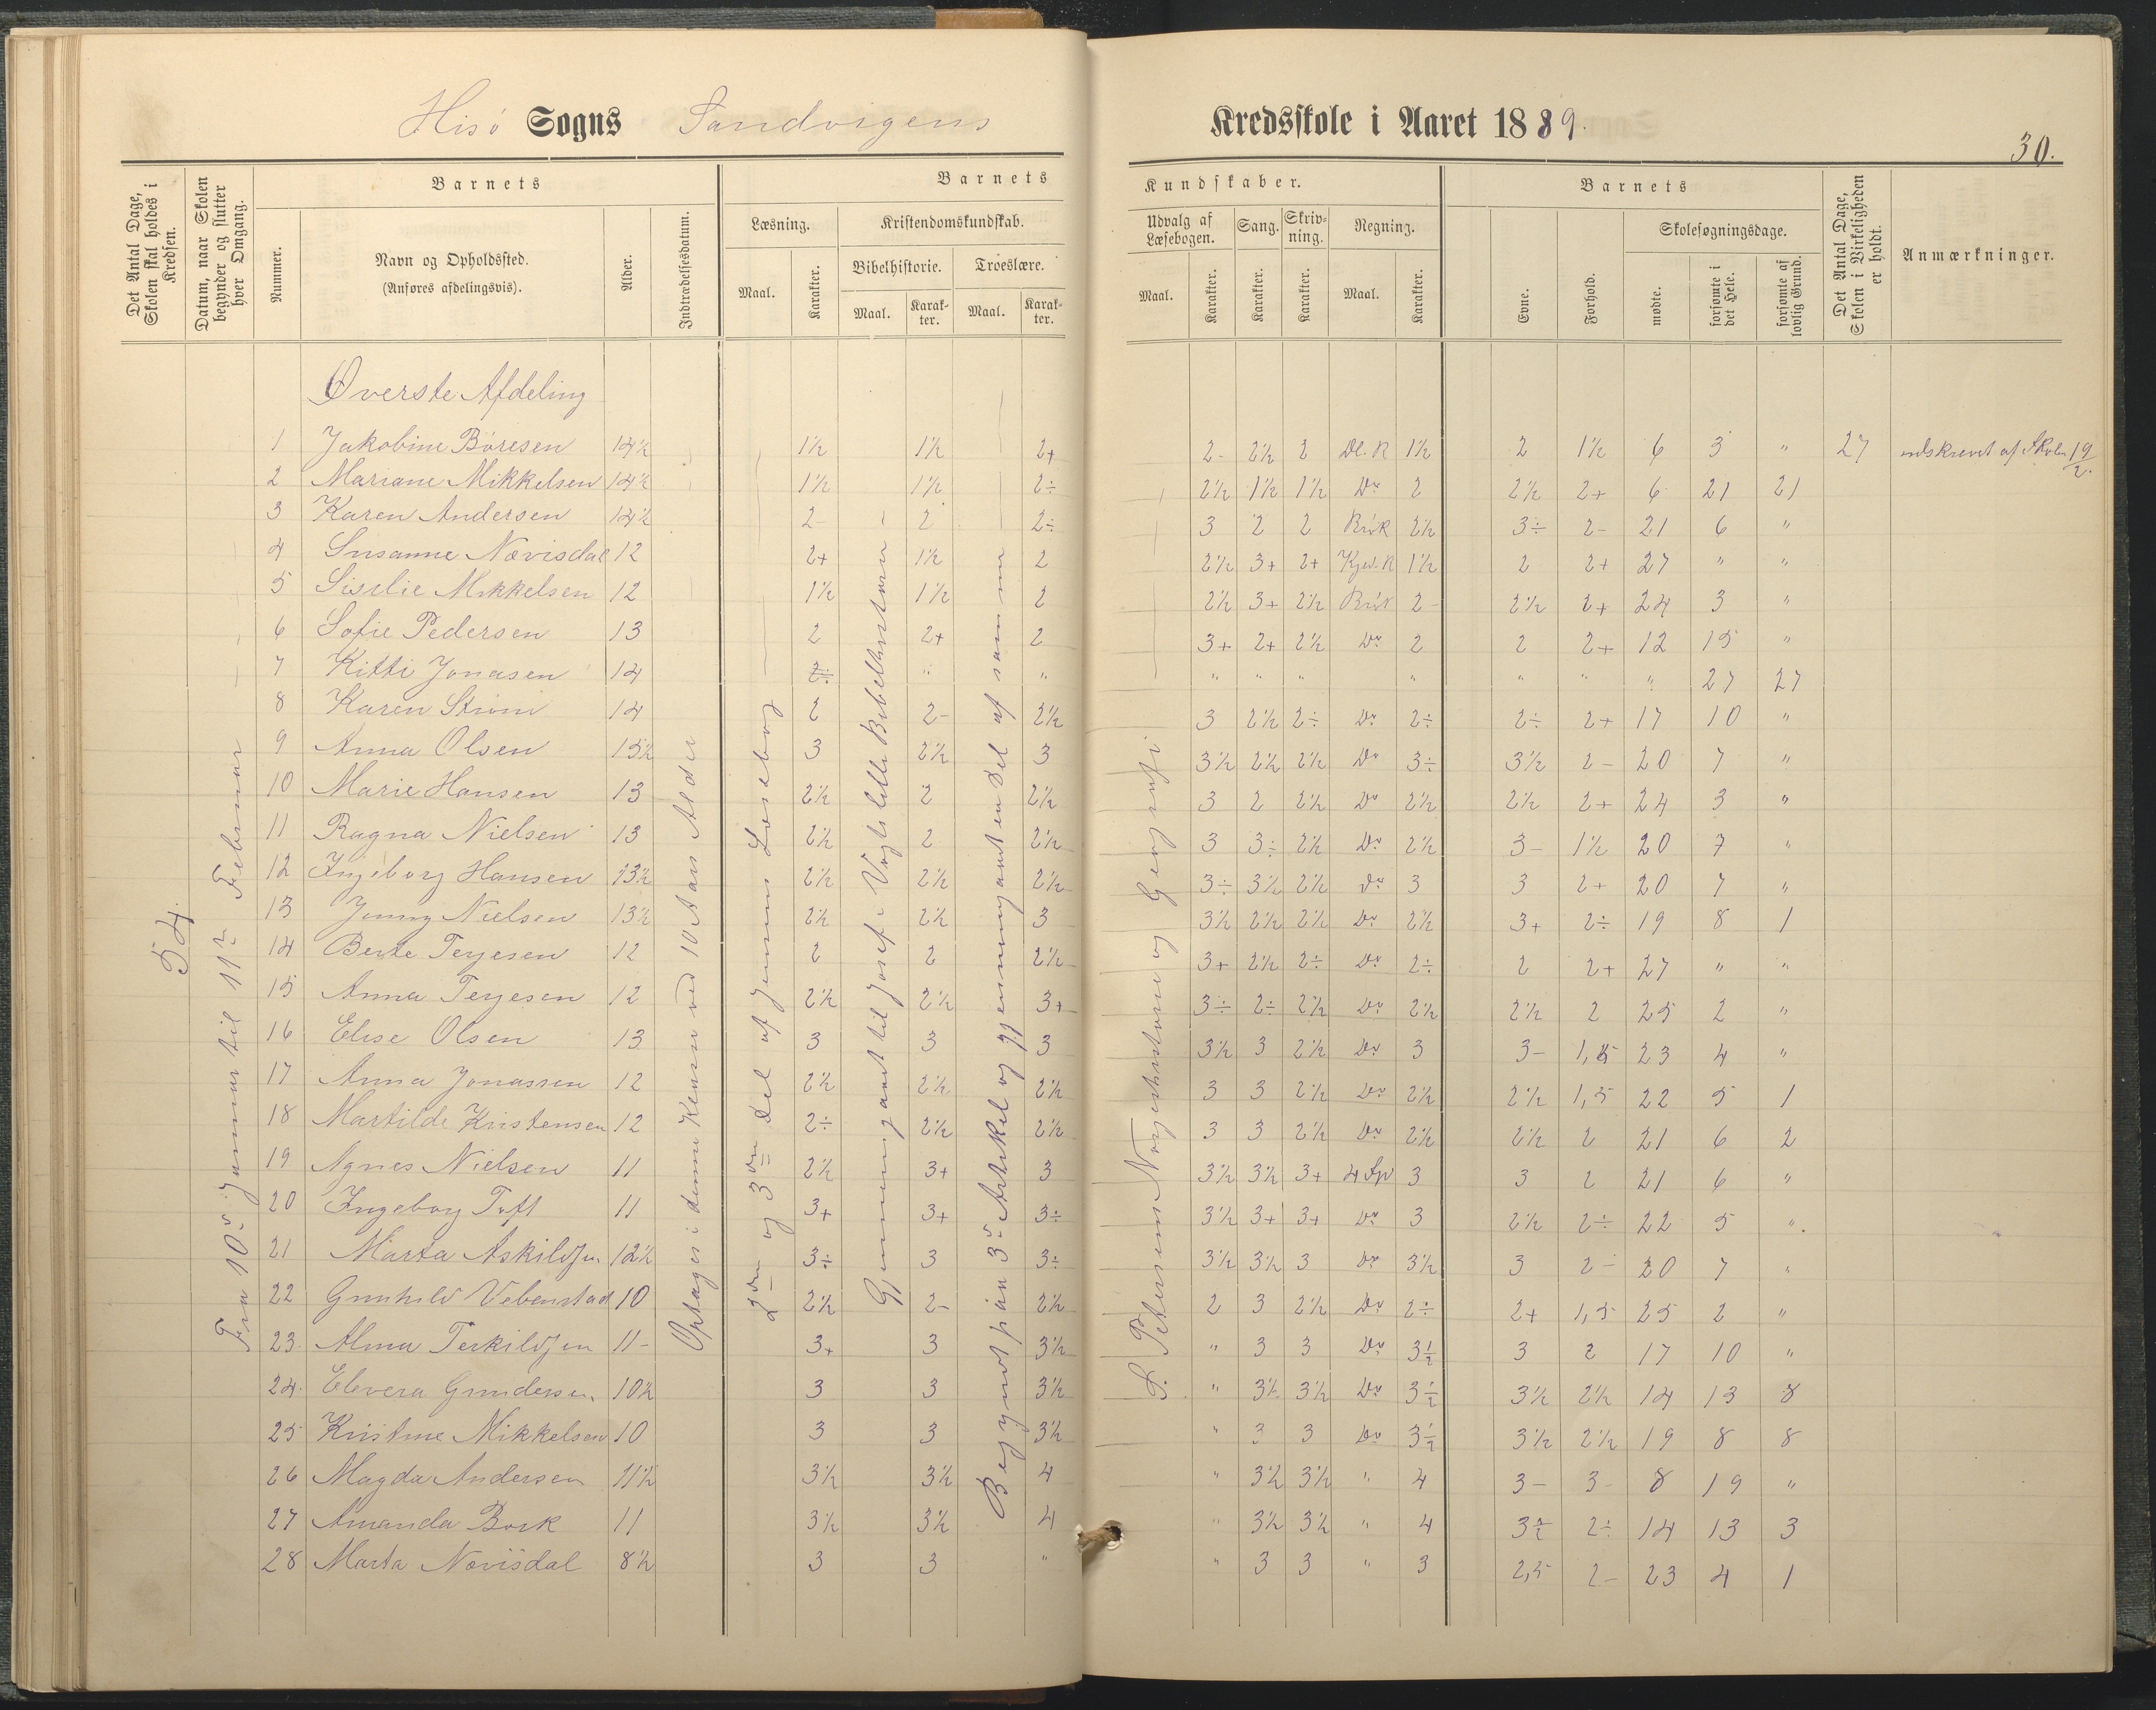 Hisö Sogns Sandvigens Kredsskole i Aaret 1889.
30.
Det Antal Dage, Skolen skal holdes i Kredsen.
Datum, naar Skolen begynder og slutter hver Omgang.
Barnets
Nummer.
Navn og Opholdssted.
(Anføres afdelingsvis).
Alder.
Indtrædelsesdatum.
Barnets Kundskaber.
Læsning.
Maal.
Karakter.
Kristendomskundskab.
Bibelhistorie.
Maal.
Karakter.
Troeslære.
Maal.
Karakter.
Udvalg af Læsebogen.
Maal.
Karakter.
Sang.
Karakter.
Skrivning.
Karakter.
Regning.
Maal.
Karakter.
Barnets
Evne.
Forhold.
Skolesøgningsdage.
mødte.
forsømte i det Hele.
forsømte af lovlig Grund.
Det Antal Dage, Skolen i Virkeligheden er holdt.
Anmærkninger.
54.
Fra 10de Januar til 11te Februar
Optages i denne Klasse ved 10 Aars Alder
2den og 3den Del af Jensens Læsebog
Gjennemgaaet til Josef i Vogts lille Bibelhistorie
Begyndt paa 3die Artikel og gjennemgaaet en Del af samme
S. Petersens Norgeshistorie og Geografi
Øverste Afdeling
1 Jakobine Böresen 14½ 1½ 1½ 2+ 2- 2½ 2 Dl. R 1½ 2 1½ 6 3 " 27 udskrevet af Skolen 19/2.
2 Mariane Mikkelsen 14½ 1½ 1½ 2÷ 2½ 1½ 1½ Do 2 2½ 2+ 6 21 21
3 Karen Andersen 14½ 2- 2 2÷ 3 2 2 Brök 2½ 3÷ 2- 21 6 "
4 Susanne Nævisdal 12 2+ 1½ 2 2½ 3+ 2+ Kjed. R 1½ 2 2+ 27 " "
5 Sisilie Mikkelsen 12 1½ 1½ 2 2½ 3+ 2½ Brök 2- 2½ 2+ 24 3 "
6 Sofie Pedersen 13 2 2+ 2 3+ 2+ 2½ Do 2 2 2+ 12 15 "
7 Kitti Jonasen 14 2÷ " " " " " " " " " 27 27
8 Karen Ström 14 2 2- 2½ 3 2½ 2÷ Do 2÷ 2÷ 2+ 17 10 "
9 Anna Olsen 15½ 3 2½ 3 3½ 2½ 2½ Do 3÷ 3½ 2- 20 7 "
10 Marie Hansen 13 2½ 2 2½ 3 2 2½ Do 2½ 2½ 2+ 24 3 "
11 Ragna Nielsen 13 2½ 2 2½ 3 3÷ 2½ Do 2½ 3- 1½ 20 7 "
12 Ingeborg Hansen 13½ 2½ 2½ 2½ 3÷ 3½ 2½ Do 3 3 2+ 20 7 "
13 Jenny Nielsen 13½ 2½ 2½ 3 3½ 2½ 2½ Do 2½ 3+ 2÷ 19 8 1
14 Berte Terjesen 12 2 2 2½ 3+ 2½ 2÷ Do 2÷ 2 2+ 27 " "
15 Anna Terjesen 12 2½ 2½ 3+ 3÷ 2÷ 2½ Do 2½ 2½ 2 25 2 "
16 Elise Olsen 13 3 3 3 3½ 3 2½ Do 3 3- 1,5 23 4 "
17 Anna Jonassen 12 2½ 2½ 2½ 3 3 2½ Do 2½ 2½ 1,5 22 5 1
18 Martilde Kristensen 12 2÷ 2½ 2½ 3 3 2½ Do 2½ 2½ 2 21 6 2
19 Agnes Nielsen 11 2½ 3+ 3 3½ 3½ 3+ 4 Sp 3 3 2 21 6 "
20 Ingeborg Toft 11 3+ 3+ 3÷ 3½ 3+ 3+ Do 3 2½ 2÷ 22 5 "
21 Marta Askildsen 12½ 3÷ 3 3÷ 3½ 3½ 3 Do 3½ 3 2- 20 7 "
22 Gunhild Vebenstad 10 2½ 2- 2½ 2 3 2½ Do 2÷ 2+ 1,5 25 2 "
23. Alma Terkildsen 11- 3+ 3 3½ " 3 3 Do 3½ 3 2 17 10 "
24. Elevera Gundersen 10½ 3 3 3½ " 3½ 3½ Do 3½ 3½ 2½ 14 13 8
25 Kristine Mikkelsen 10 3 3 3½ " 3 3 Do 3½ 3½ 2½ 19 8 8
26 Magda Andersen 11½ 3½ 3½ 4 " 3½ 3½ " 4 3- 3- 8 19 "
27 Amanda Bork 11 3½ 3½ 4 " 3½ 3½ " 4 3½ 2÷ 14 13 3
28 Marta Nævisdal 8½ 3 3 " " 3 3 " 3 2,5 2- 23 4 1